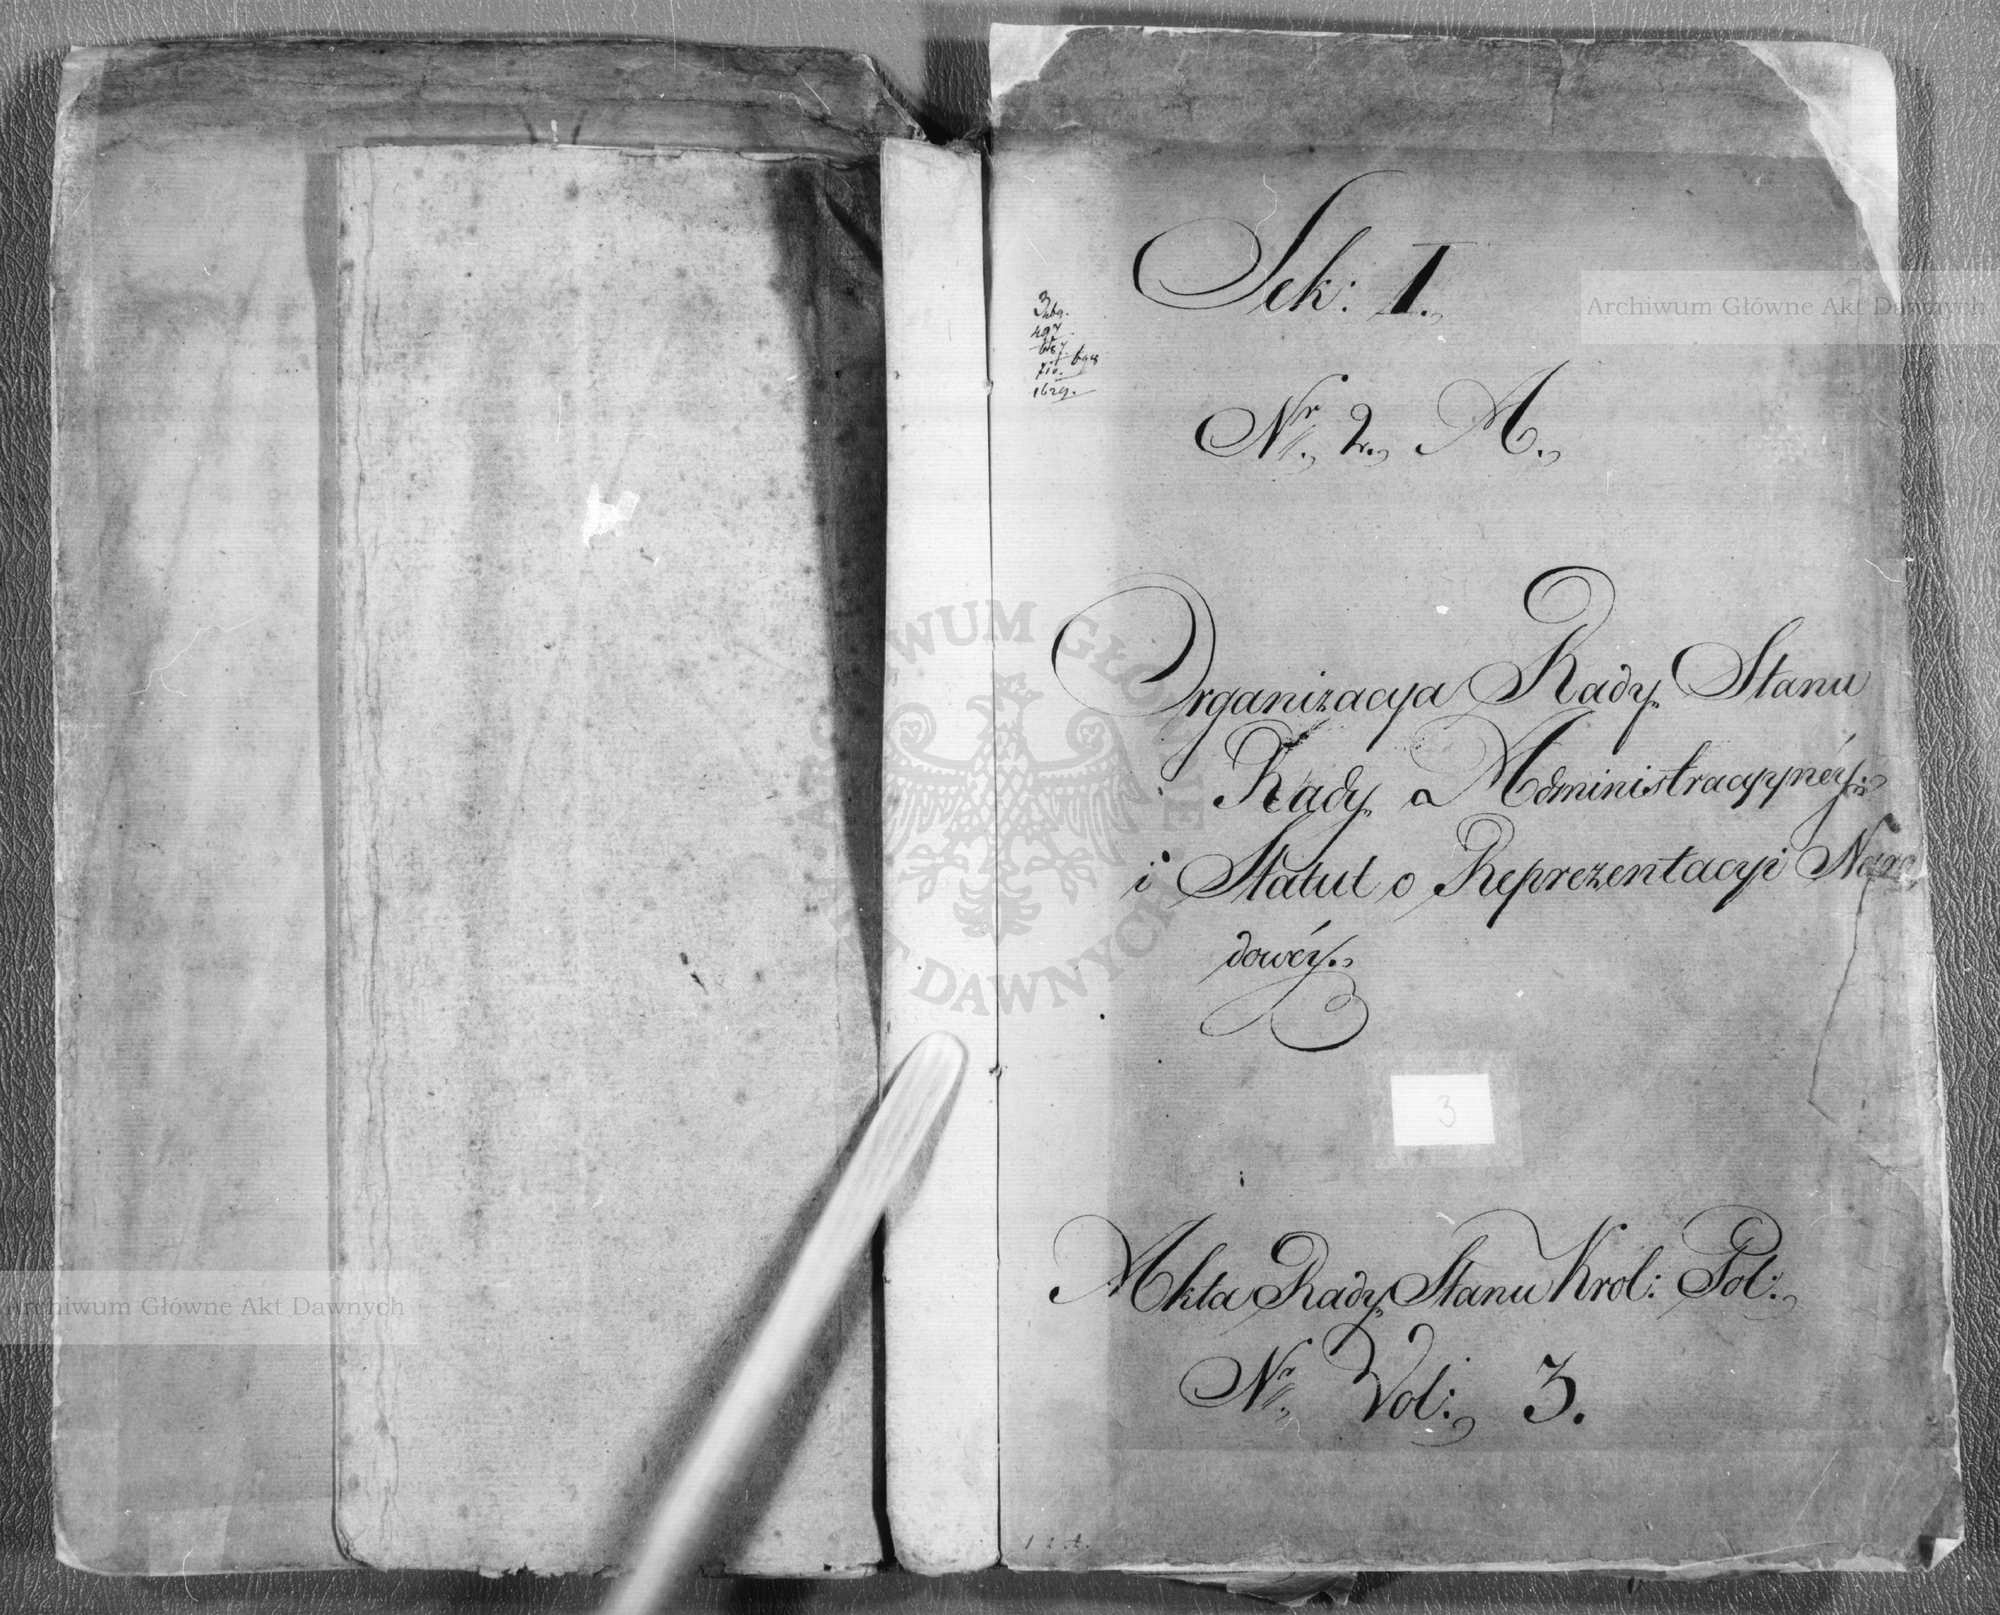 Sek: I.
Nr. 2. A.
3
269.
497
687. 698
710.
1629.
Organizacya Rady Stanu
Rady a Administracyynéy.
i Statut o Reprezentacyi Naro
dowéy.
3
Akta Rady Stanu Krol: Pol:
Nr. Vol: 3.
Archiwum Główne Akt Dawnych
Archiwum Główne Akt Dawnych
ARCHIWUM GŁÓWNE AKT DAWNYCH